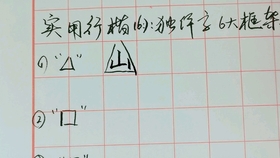 实用行楷(16):独体字6大框架
(1)"△" 山
②"口"